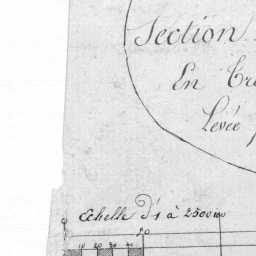 Section
En
Levée
Echelle d'1 à 2500
50
10 20 30 40